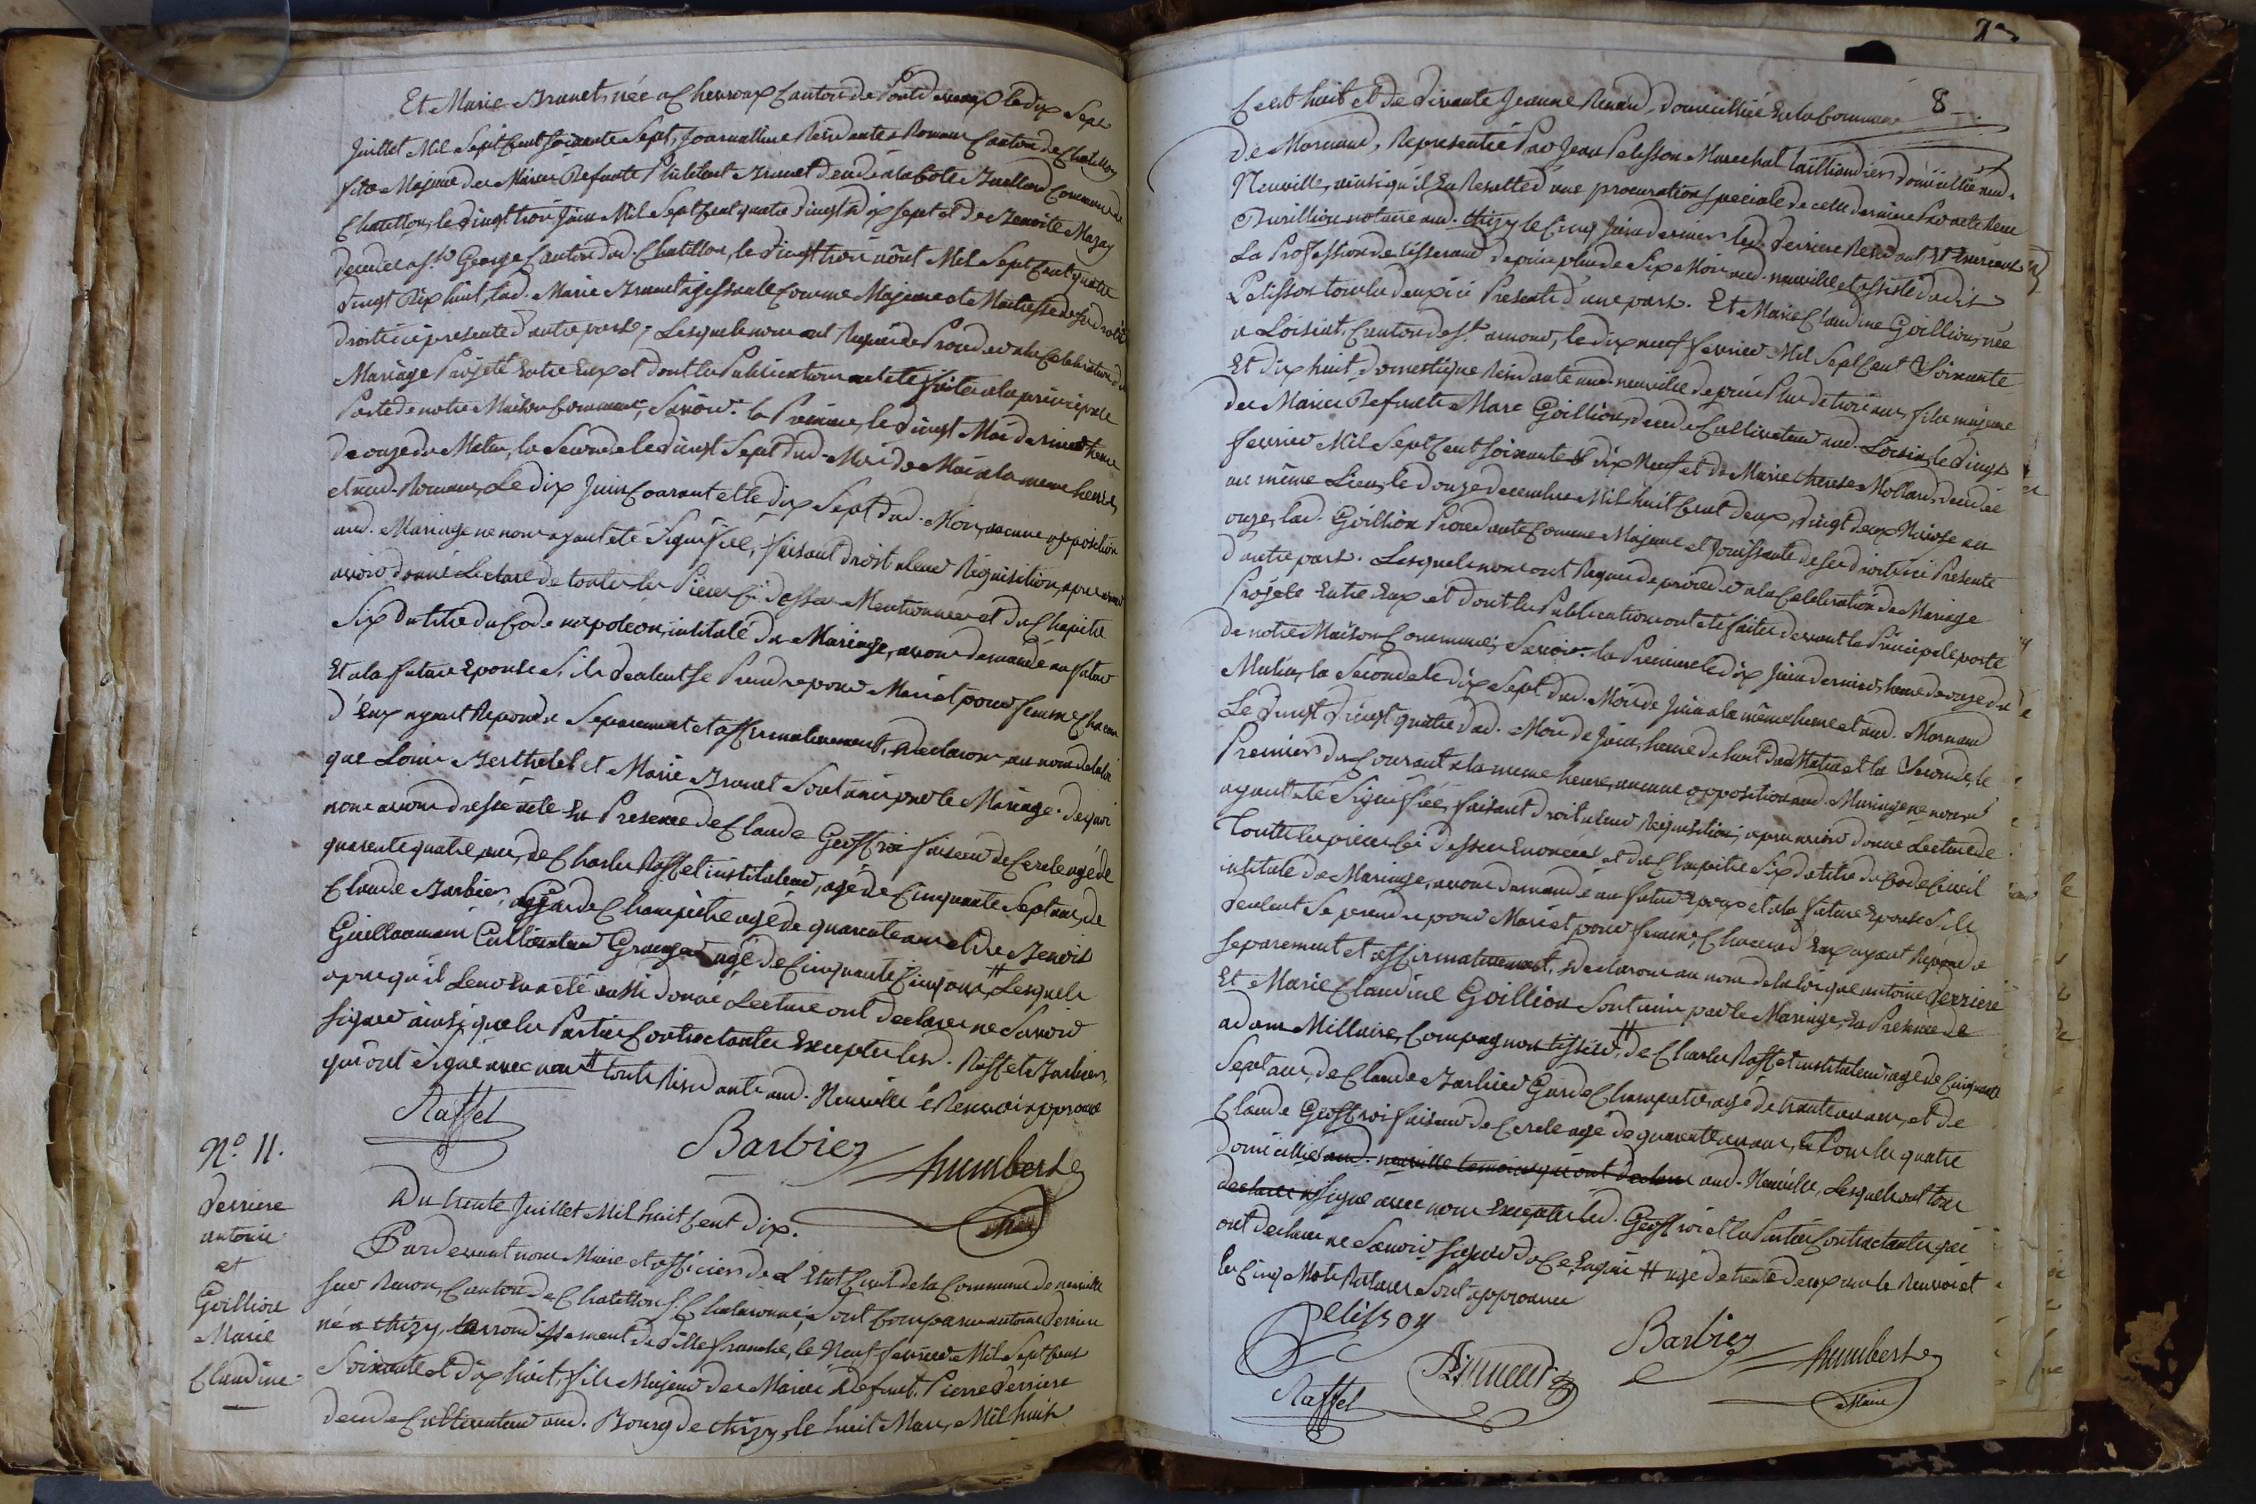 Et Marie Brunet, née a Chevroux Canton de Pontdevaux le dix Sept
Juillet Mil Sept Cent soixante Sept, Journalliere Residante a Romans Canton de Chatillon
fille Majeure des Mariés Defunts Philibert Brunet decedé a la Commune de
Chatillon, le vingt trois Juin Mil Sept Cent quatre vingt dix sept et de Benoite Mazuy
decedée a St. George Canton dud. Chatillon, le vingt trois aôut Mil Sept Cent quatre
vingt dix huit, lad. Marie Brunet agissante Comme Majeure et Maitresse de ses droits
droits ici presente d'autre part; Lesquels nous ont Requis de Proceder a la Celebration du
Mariage Projeté Entre Eux et dont les Publications ont eté faites a la principale
Porte de notre Maison Commune, Savoir. la Premiere, le vingt Mai dernier heure
de onze du Matin, la Seconde le vingt Sept dud. Mois de Mai a la meme heure,
et aud. Romans, Le dix Juin Courant et le dix Sept dud. Mois, aucune opposition
aud. Mariage ne nous ayant eté Signifiée, faisant droit a leur Requisition, apres avoir
avoir donné Lecture de toutes les Pieces Ci dessus Mentionnées et du Chapitre
Six du titre du Code napoleon, intitulé du Mariage, avons demandé au futur
Et a la future Epouse S'ils veulent se Prendre pour Mari et pour femme, Chacun
d'Eux ayant Repondu Separement et affirmativement, declarons, au nom de la loi
que Louis Berthelet et Marie Brunet Sont unis par le Mariage. de quoi
nous avons dressé acte En Presence de Claude Geoffroi faiseur de Cercle agé de
quarente quatre ans, de Charles Raffet instituteur, agé de Cinquante Sept ans, de
Claude Barbier, Garde Champêtre agé de quarente ans et de Benoit
Guillaumain Cultivateur Granger agé de Cinquante Cinq ans, # Lesquels
apres qu'il Leur En a eté aussi donné Lecture ont declarer ne Savoir
Signer ainsi que les Parties Contractantes Exceptés lesd. Raffet et Barbier,
qui ont Signé avec nous # touts Residants aud. Neuville le Renvoi approuvé
Raffet
Barbier
humbert
Maire
N.° 11.
Verriere
antoine
et
Goillion
Marie
Claudine
Du trente Juillet Mil huit Cent dix.
Pardevant nous Maire et officier de L'Etat Civil de la Commune de neuville
sur Renon, Canton de Chatillon s. Chalaronne, Sont Comparus antoine Verriere
né a thizy, arrondissement de Villefranche, le Neuf fevrier Mil Sept Cent
Soixante et dix huit, fils Majeur des Mariés Defunt Pierre Verriere
decedé Cultivateur aud. Bourg de thizy, le huit Mars Mil huit
8
Cent huit et de vivante Jeanne Renard, domicilliée En la Commune
de Mornand, Representée Par Jean Pelisson Marechal taillandier, domicillié aud.
Neuville, ainsi qu'il En Resulte d'une procuration speciale de cette derniere Par acte
notaire aud. thizy le Cinq Juin dernier led. Verriere Residant Et Exercant
La Proffession de tisserand depuis plus de Six Mois aud. neuville et assisté dudit
Pelisson tous les deux ici Presents d'une part. Et Marie Claudine Goillion, née
a Loisiat, Canton de St. amour, le dix neuf fevrier Mil Sept Cent Soixante
Et dix huit, domestique Residante aud. neuville depuis Plus de trois ans, fille majeure
des Mariés Defunts Marc Goillion, decedé Cultivateur aud. Loisia, le vingt
fevrier Mil Sept Cent Soixante & dix Neuf et de Marie therese Mollard, decedée
au même Lieu, le douze decembre Mil huit Cent deux, vingt deux Nivose an
onze, lad. Goillion Procedante Comme Majeure et Jouissante de ses droits, ici Presente
d'autre part. Lesquels nous ont Requis de proceder a la Celebration du Mariage
Projeté Entre Eux et dont les Publications ont eté faites devant la Principale porte
de notre Maison Commune, Savoir. la Premiere le dix Juin dernier, heure de onze du
Matin, la Seconde le dix Sept dud. Mois de Juin a la même heure et aud. Mornand
Le vingt vingt quatre dud. Mois de Juin, heure de huit du Matin et la Seconde, le
Premier du Courant a la meme heure, aucune opposition aud. Mariage ne nous
ayant eté Signifiée, faisant droit a leur Requisition; apres avoir donné Lecture de
Toutes les pieces Ci dessus Enoncées et du Chapitre Six du titre du Code Civil
intitulé du Mariage, avons demandé au futur Epoux et a la future Epouse S'ils
veulent Se prendre pour Mari et pour femme, Chacun d'Eux ayant Repondu
separement et affirmativement, declarons au nom de la loi que antoine Verriere
Et Marie Claudine Goillion Sont unis par le Mariage, En Presence de
adam Millaire, Compagnon tissier, # de Charles Raffet instituteur, agé de Cinquante
Sept ans, de Claude Barbier Garde Champetre, agé de trente ans, et de
Claude Geoffroi faiseur de Cercle agé de quarente ans, Tous les quatre
domicilliés aud. neuville temoins qui ont declaré aud. Neuville, Lesquels ont tous
declaré Signé avec nous Excepté led. Geoffroi et les Parties Contractantes qui
ont declarer ne Savoir Signer de Ce Enquis # agé de trente deux ans le Renvoi et
les Cinq Mots Raturés Sont approuvés
Pelisson
Raffet
Barbier
humbert
Maire